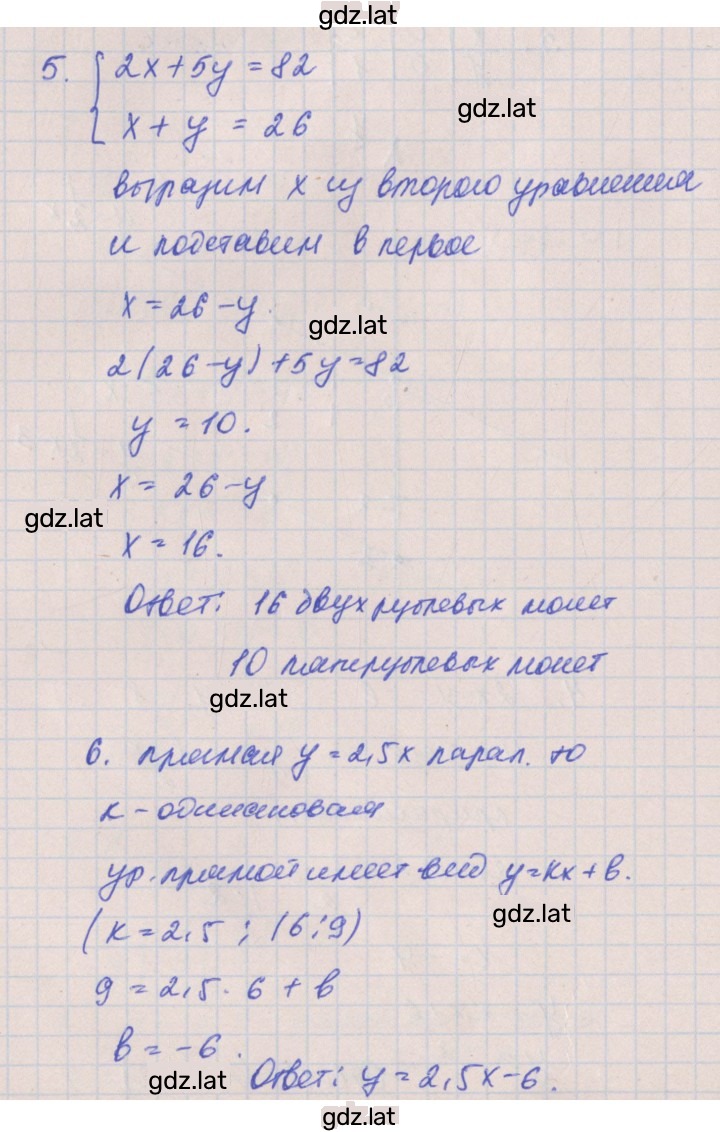 gdz.lat
5. { 2x+5y=82
gdz.lat
x+y=26
выразим x из второго уравнения
и подставим в первое
x=26-y
gdz.lat
2(26-y)+5y=82
y=10.
x=26-y
gdz.lat
x=16.
Ответ: 16 двухрублевых монет
10 пятирублевых монет
gdz.lat
6. прямая y=2,5x парал. то
к-одинаковая
ур. прямой имеет вид y=кx+в.
gdz.lat
(к=2,5; (6;9)
9=2,5·6+в
в=-6.
gdz.lat Ответ: y=2,5x-6.
gdz.lat